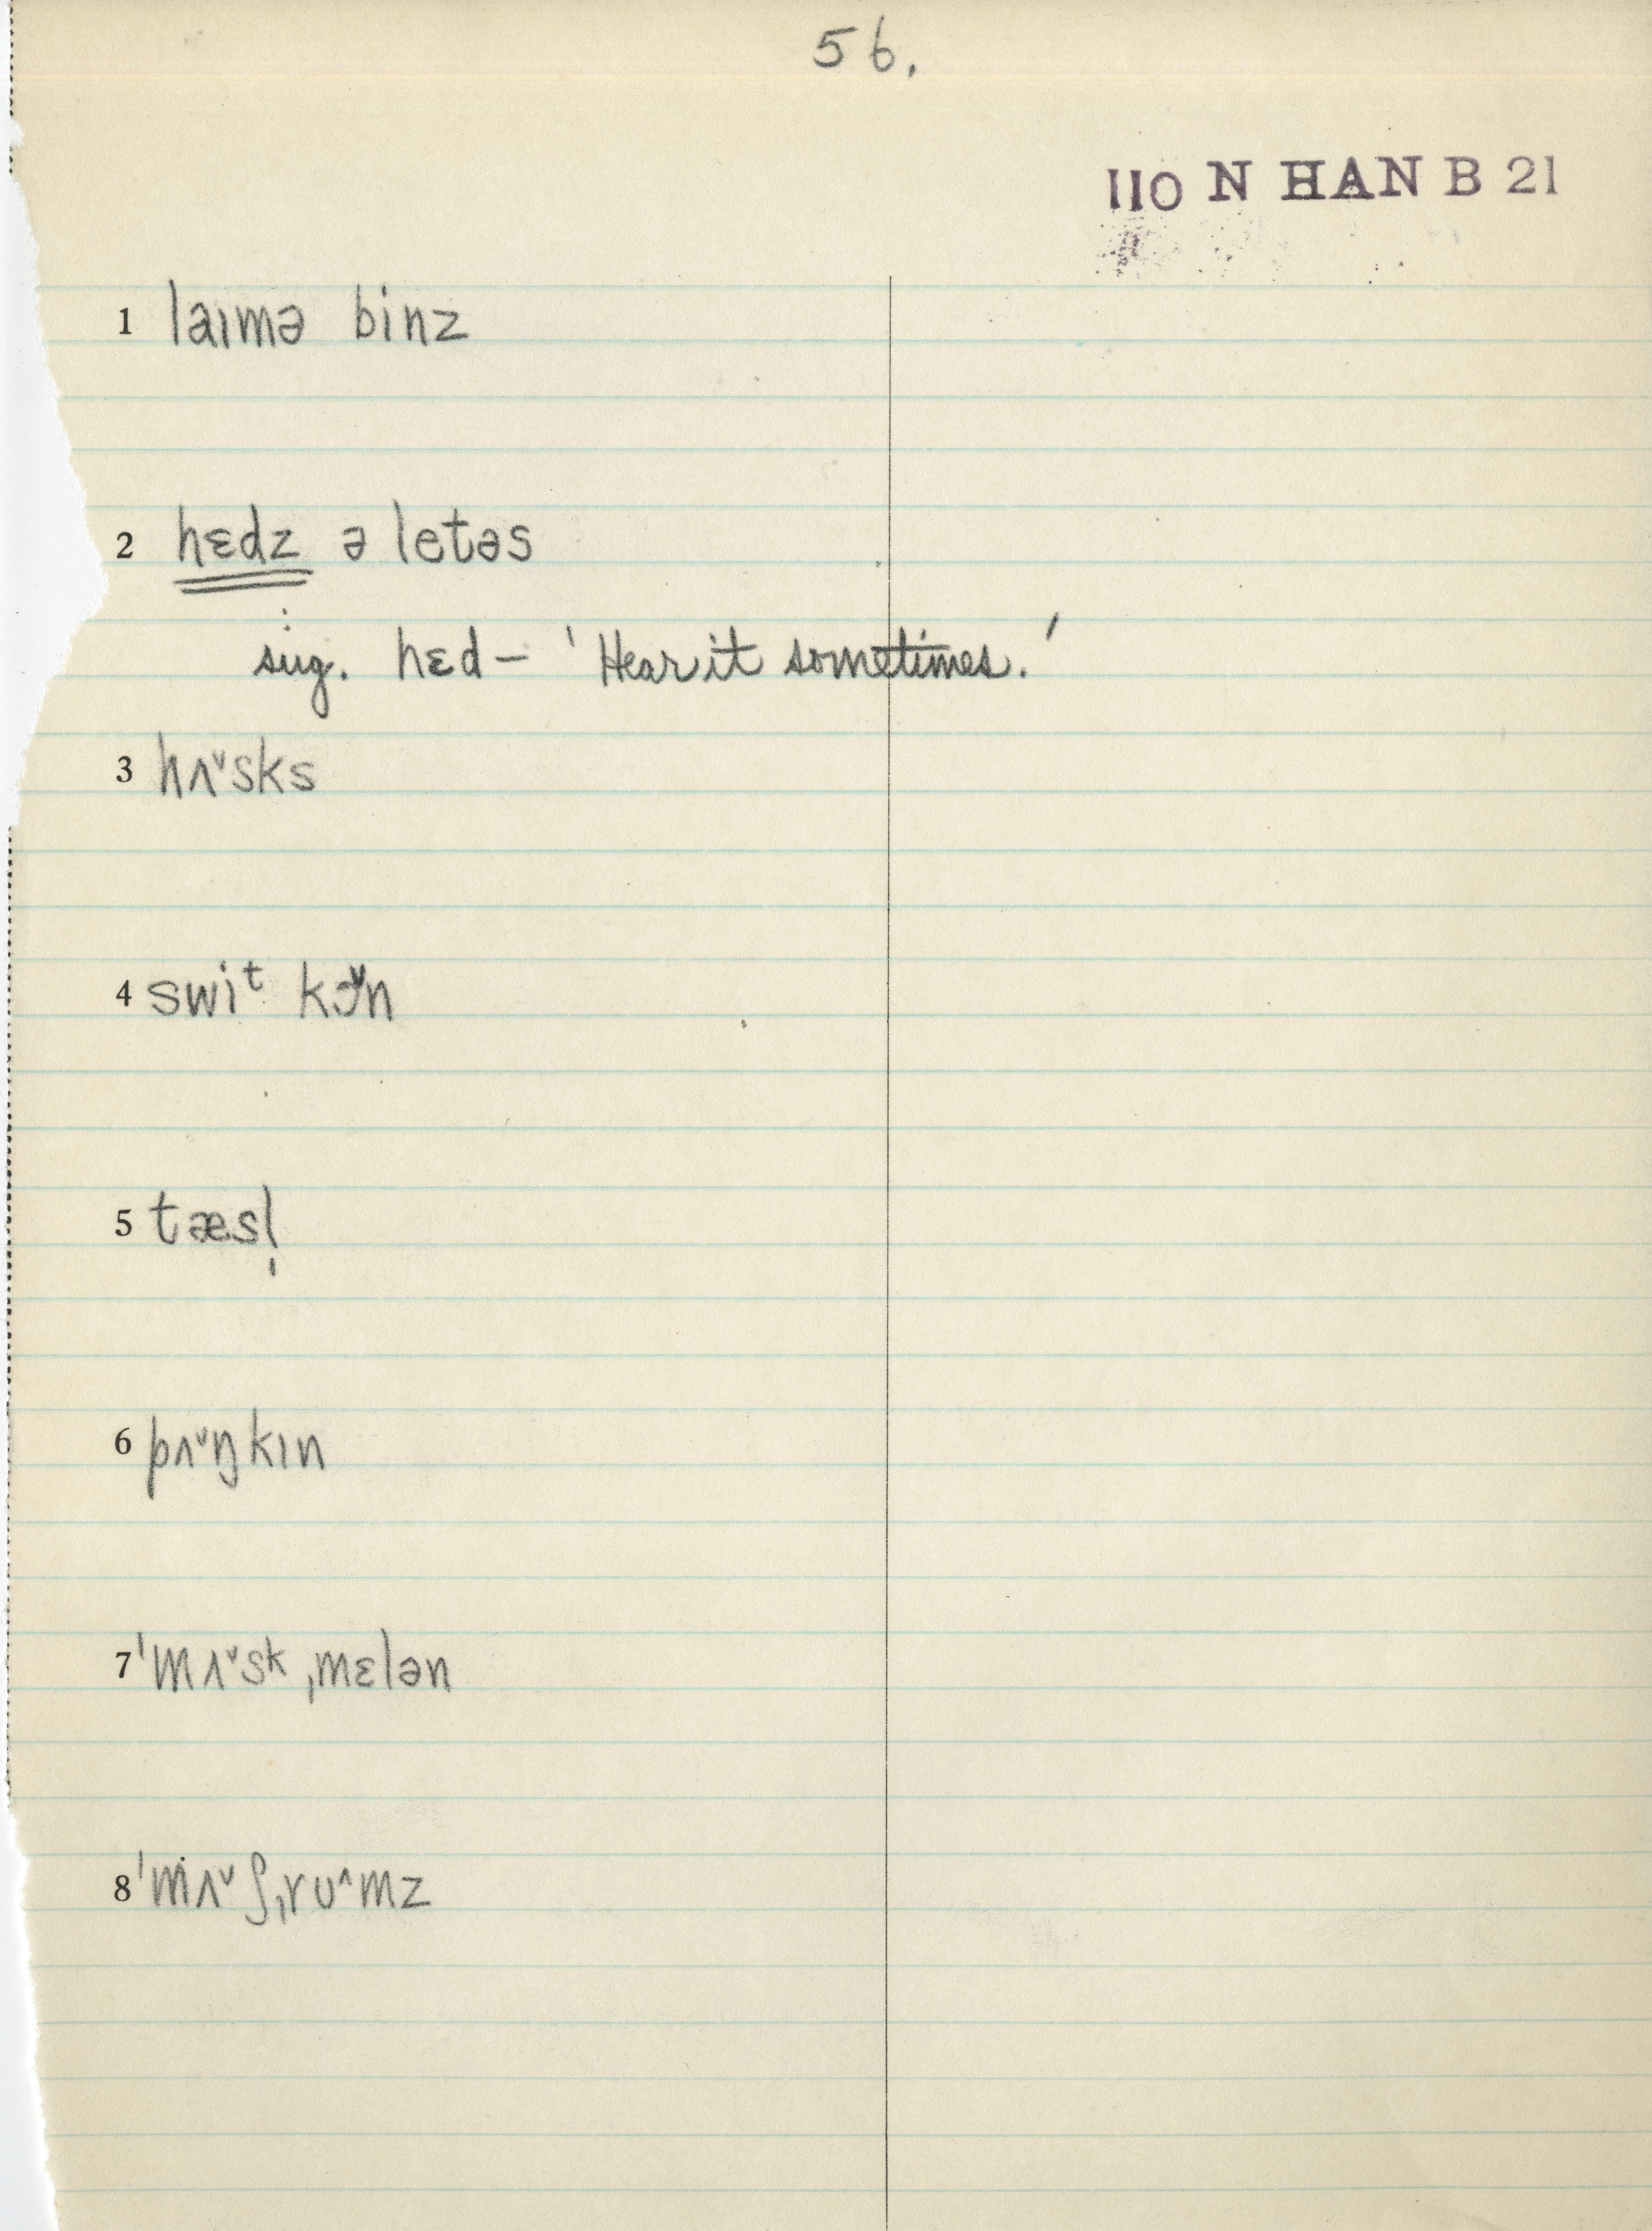 56.
110 N HAN B 21
1 laɪmə binz
2 hɛdz ə letəs
sug. hɛd – 'Hear it sometimes.'
3 hʌ˅sks
4 swiᵗ kɔ˅n
5 tæsl̩
6 pʌ˅ŋkɪn
7 ˈmʌ˅sk ˌmɛlən
8 ˈmʌ˅ʃˌrʊ˄mz